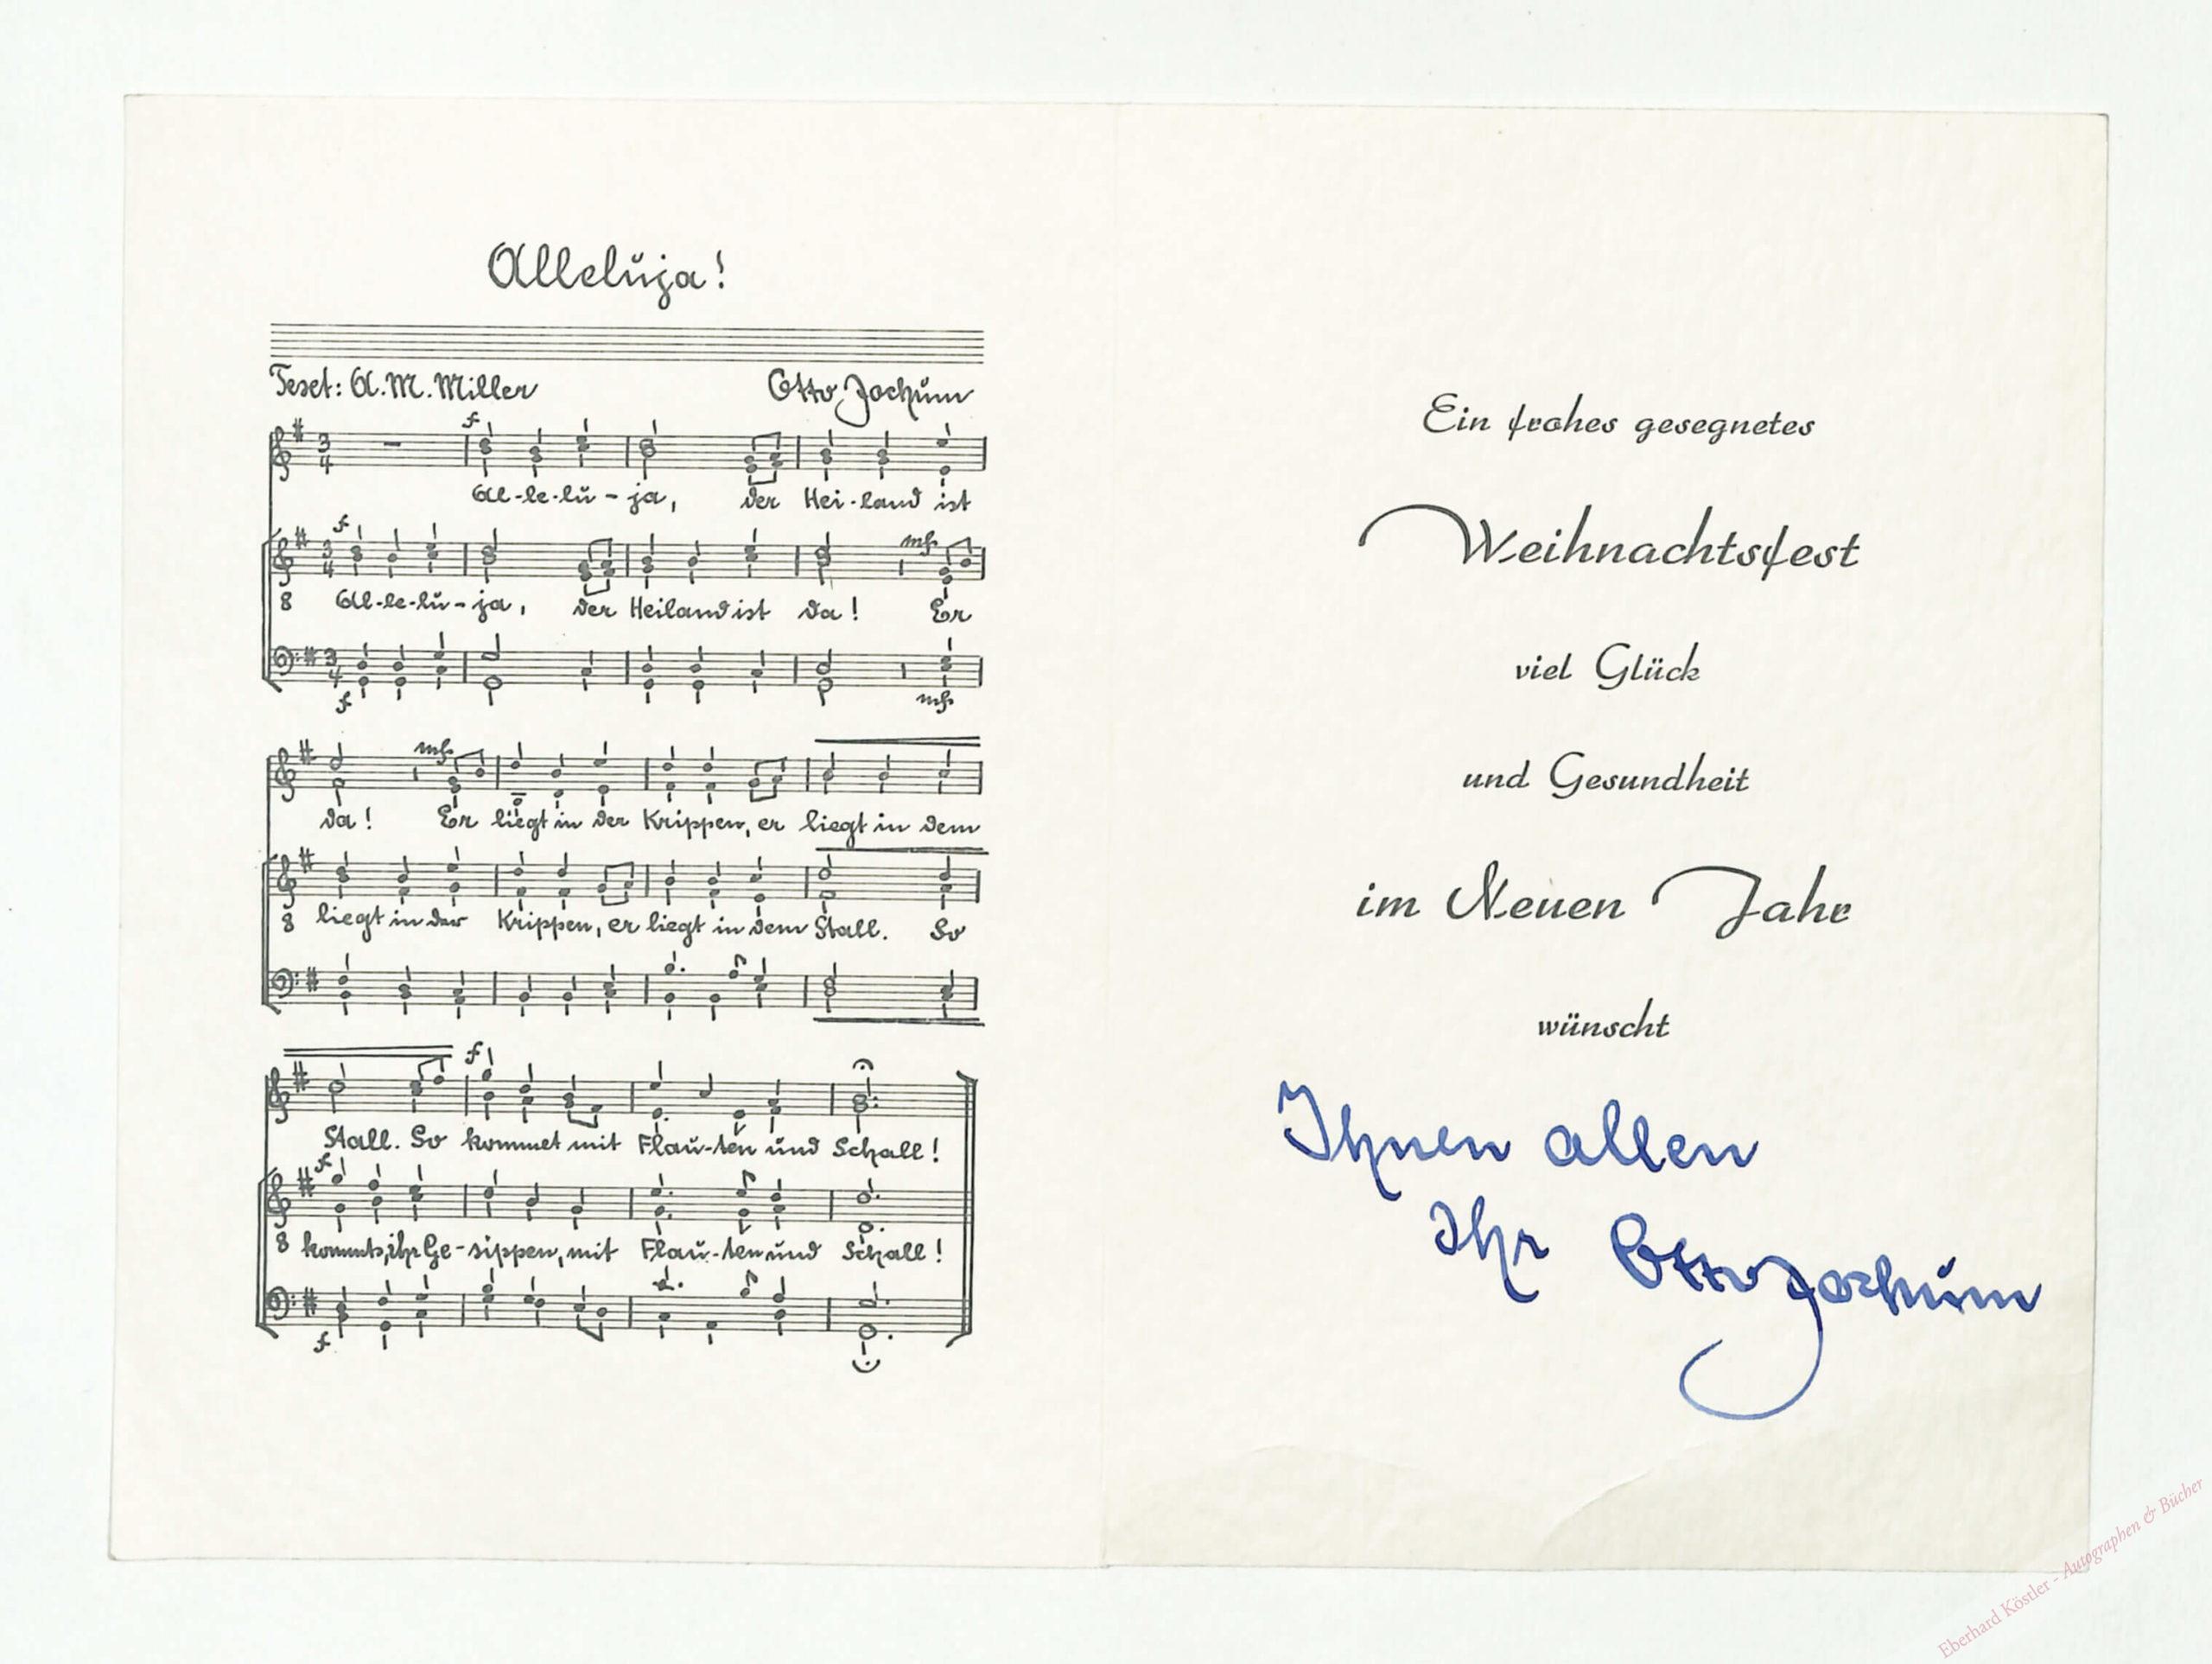 Alleluja!
Text: A. M. Miller Otto Jochum
f
Al-le-lu-ja, der Hei-land ist
f mf
8 Al-le-lu-ja, der Heiland ist da! Er
f mf
mf
da! Er liegt in der Krippen, er liegt in dem
8 liegt in der Krippen, er liegt in dem Stall. So
f
Stall. So kommet mit Flau-ten und Schall!
f
8 kommt, ihr Ge-sippen, mit Flau-ten und Schall!
f
Ein frohes gesegnetes
Weihnachtsfest
viel Glück
und Gesundheit
im Neuen Jahr
wünscht
Ihnen allen
Ihr Otto Jochum
Eberhard Köstler - Autographen & Bücher